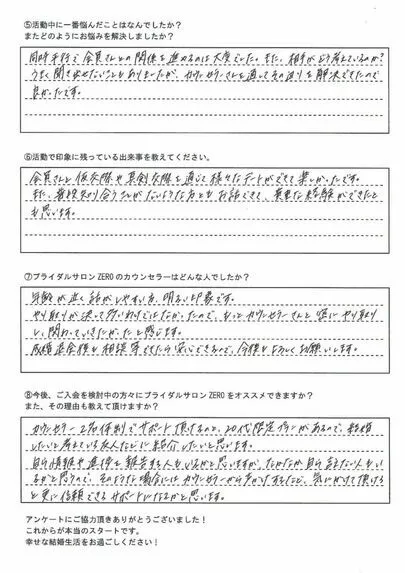 ⑤活動中に一番悩んだことはなんでしたか？
またどのようにお悩みを解決しましたか？
同時平行で会員さんとの関係を進めるのは大変でした。また、相手がどう考えているのか？
うまく聞き出せないこともありましたが、カウンセラーさんを通してその辺りを解決できたので
良かったです。
⑥活動で印象に残っている出来事を教えてください。
会員さんと仮交際や真剣交際を通じて様々なデートができて楽しかったです。
また、普段知り合うことがないような方ともお話できて、貴重な経験ができたと
も思います。
⑦ブライダルサロンZEROのカウンセラーはどんな人でしたか？
年齢が近く話がしやすい方、明るい印象です。
やり取りが決して多いわけではなかったので、もっとカウンセラーさんと密にやり取り
し、関わっていきたかったと感じます。
成婚退会後も相談等できたら安心できるので、今後もよろしくお願いします。
⑧今後、ご入会を検討中の方々にブライダルサロンZEROをオススメできますか？
また、その理由も教えて頂けますか？
カウンセラー2名体制でサポート頂けるのと、20代限定プランがあるので、結婚
したいと考えている友人などに紹介したいと思います。
自ら情報や進捗を報告する人もいるかと思いますが、なかなか自ら言えない人もい
るかと思うので、そのような場合にはカウンセラーから声かけするなど、気にかけて頂ける
と更に信頼できるサポートになるかと思います。
アンケートにご協力頂きありがとうございました！
これからが本当のスタートです。
幸せな結婚生活をお過ごしください！